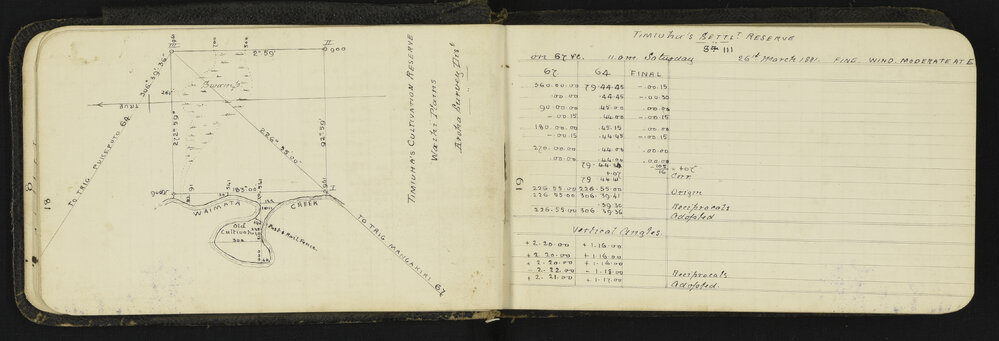 18
III
700
500
II
900
2°59'
306°39'36"
Swamp
TRUE
272°59'
226°55'00"
92°59'
TO TRIG PUKEROTO 64
183°00'
I
WAIMATA CREEK
Old
Cultivation
Post & Rail Fence
TO TRIG MANGAKIRI 67
TIMIUHA'S CULTIVATION RESERVE
Waihi Plains
Aroha Survey Dist
19
TIMIUHA'S SETTLT RESERVE
St III
on 67 ve. 11 a.m Saturday 26th March 1881. FINE. WIND. MODERATE AT E
67 64 FINAL
360.00.00 79.44.45 -.00.15
.00.00 .44.45 -.00.30
90.00.00 .45.00 .00.00
-.00.15 .44.00 -.00.15
180.00.00 .45.15 .00.00
-.00.15 .44.45 -.00.15
270.00.00 .44.00 .00.00
.00.00 .44.00 .00.00
Corr
226.55.00 226.55.00 Origin
226.55.00 306.39.41
.39.30 Reciprocals
226.55.00 39.36 Adopted
Vertical Angles.
+2.20.00 +1.16.00
+2.20.00 +1.16.00
+2.20.00 +1.16.00
-2.22.00 -1.18.00 Reciprocals
+2.21.00 +1.17.00 Adopted.